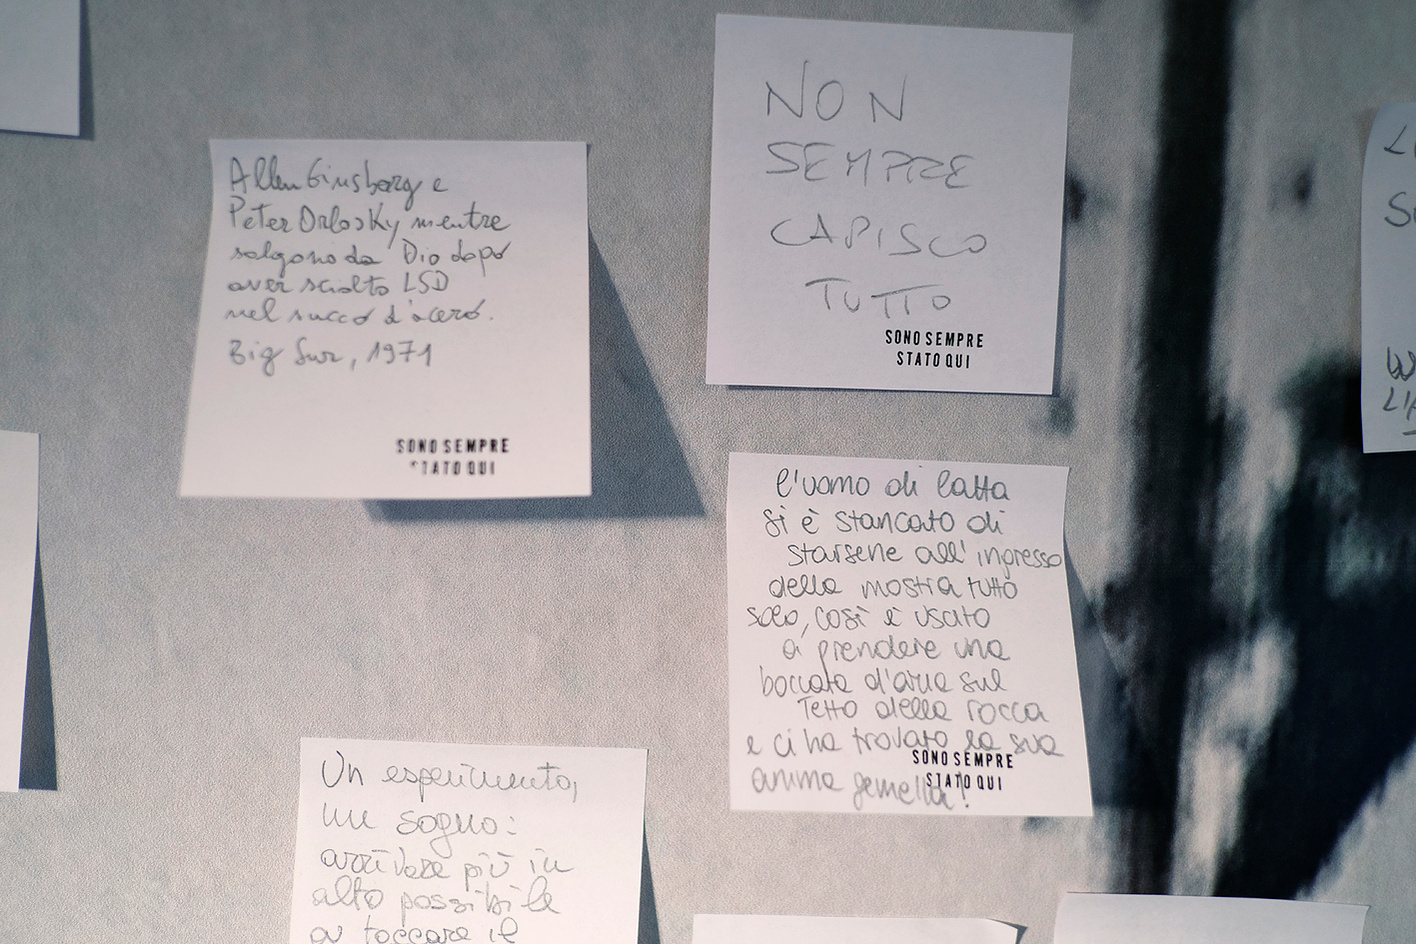 Allen Ginsberg e
Peter Orlosky mentre
salgono da Dio dopo
aver sciolto LSD
nel succo d'acero.
Big Sur, 1971
SONO SEMPRE
STATO QUI
NON
SEMPRE
CAPISCO
TUTTO
SONO SEMPRE
STATO QUI
l'uomo di latta
si è stancato di
starsene all'ingresso
della mostra tutto
solo, così è uscito
a prendere una
boccata d'aria sul
Tetto della rocca
e ci ha trovato la sua
anima gemella!
SONO SEMPRE
STATO QUI
Un esperimento,
un sogno:
arrivare più in
alto possibile
a toccare il